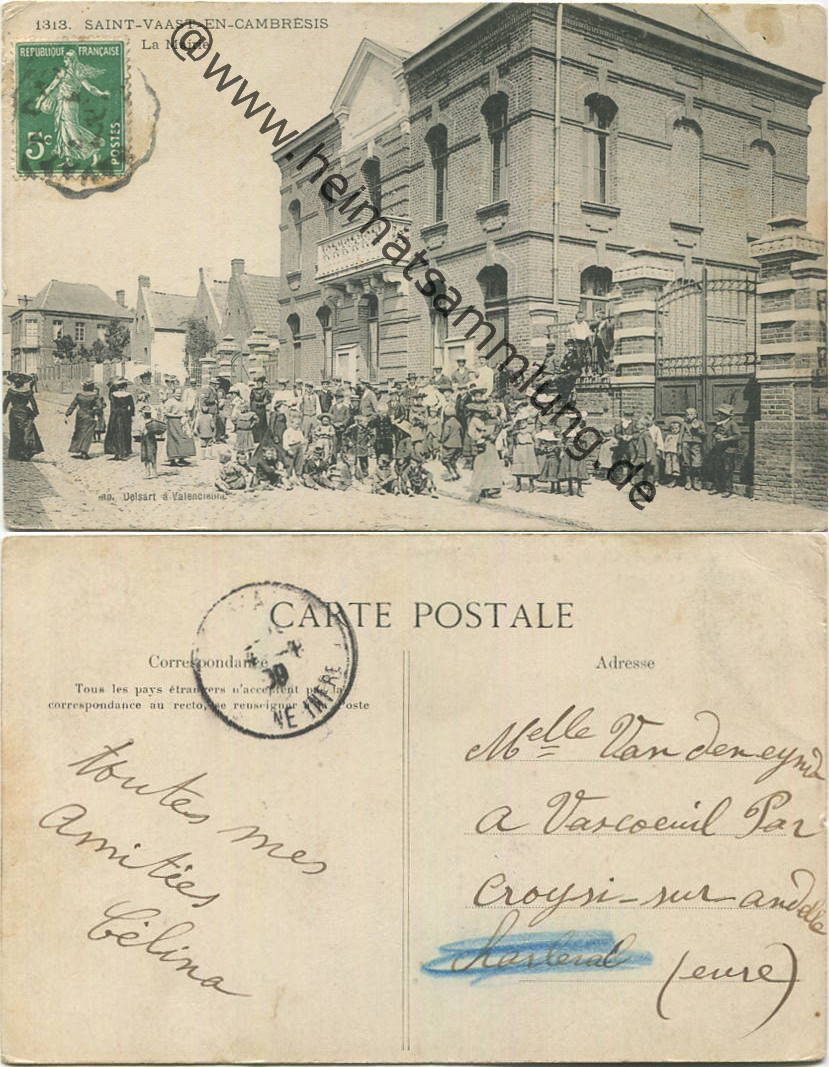 1313. SAINT-VAAST-EN-CAMBRÉSIS
La Mairie
RÉPUBLIQUE FRANÇAISE
5c
POSTES
@www.heimatsammlung.de
Imp. Delsart à Valenciennes
CARTE POSTALE
Correspondance
Tous les pays étrangers n'acceptent pas la
correspondance au recto, se renseigner à la Poste
Adresse
NE INFRE
toutes mes
Amitiés
Célina
Melle Van deneynde
a Vascoeuil Par
Croysi-sur-andelle
Charleval (eure)